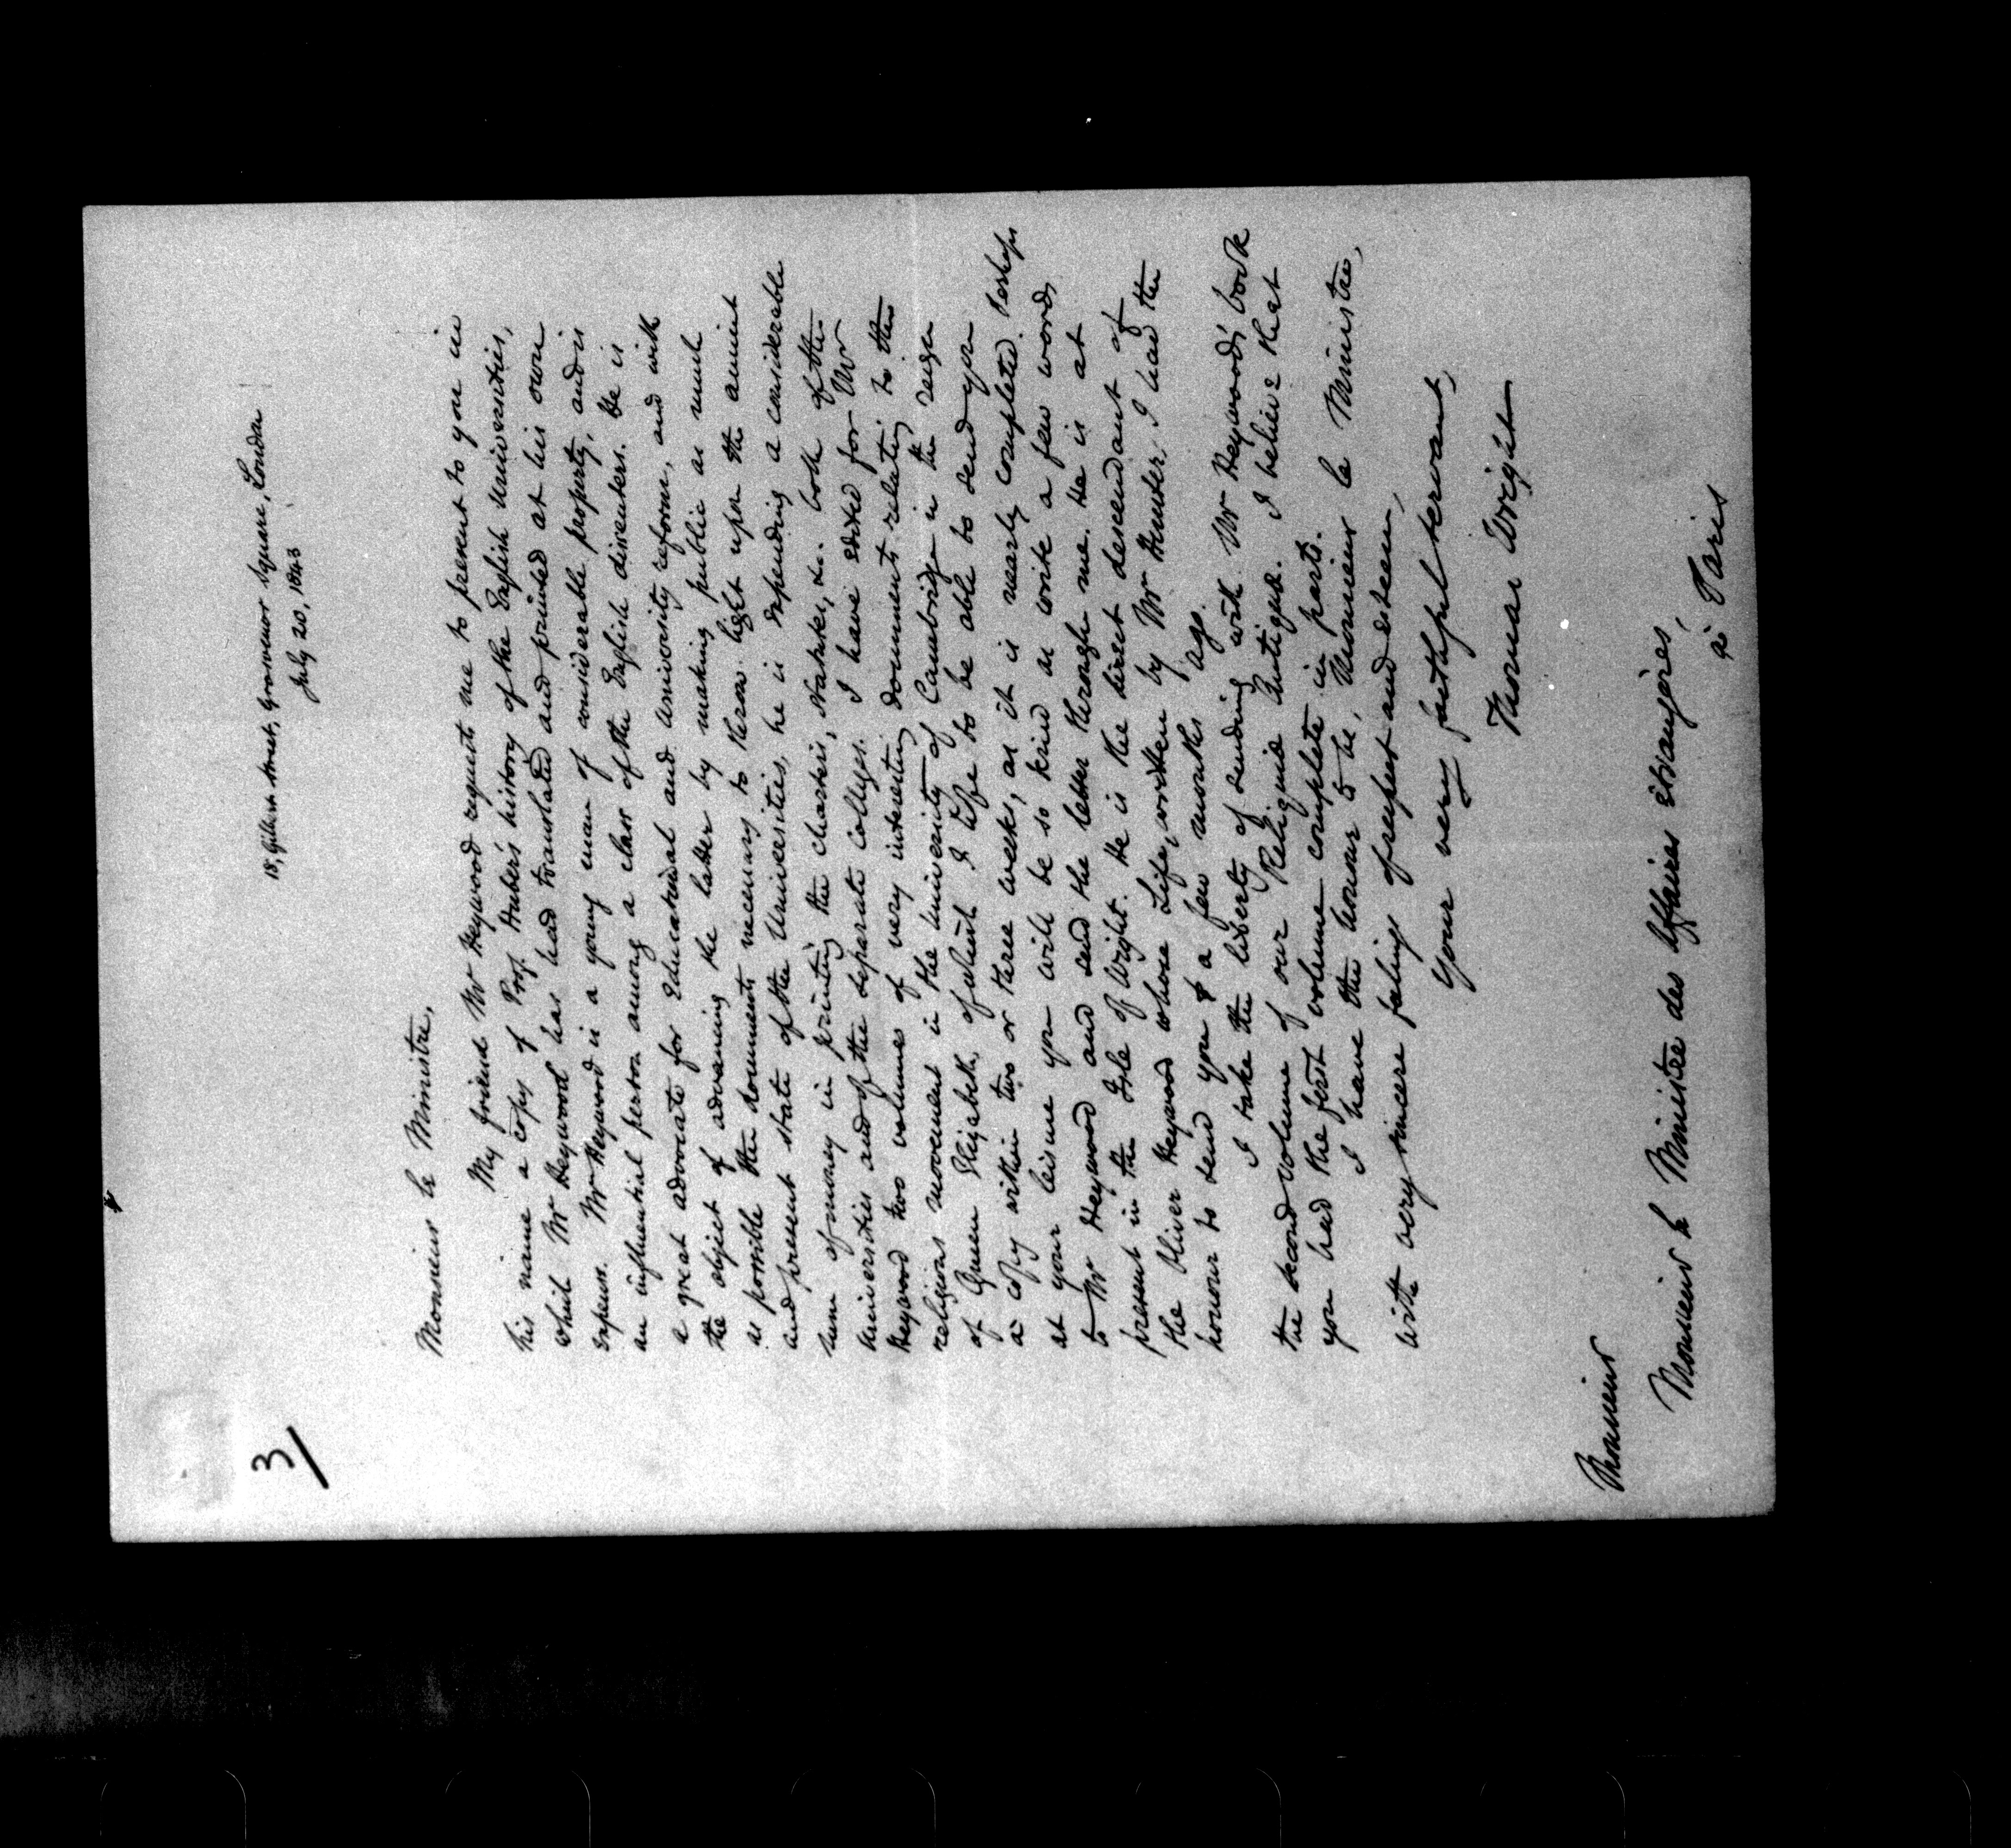 3/
18, Gilbert Street, Grosvenor Square, London
July 20, 1843
Monsieur le Ministre,
My friend Mr Heywood request me to present to you in
his name a copy of Prof. Huber's history of the English Universities,
which Mr Heywood has had translated and printed at his own
expense. Mr Heywood is a young man of considerable property, and is
an influential person among a class of the English dissenters. He is
a great advocate for educational and University reform, and with
the object of advancing the latter by making public as much
as possible the documents necessary to throw light upon the ancient
and present state of the Universities, he is expending a considerable
sum of money in printing the charters, statutes, &c. both of the
Universities and of the separate colleges. I have edited for Mr
Heywood two volumes of very interesting documents relating to the
religious movement in the University of Cambridge in the reign
of Queen Elizabeth, of which I hope to be able to send you
a copy within two or three weeks, as it is nearly completed. Perhaps
at your leisure you will be so kind as write a few words
to Mr Heywood and send the letter through me. He is at
present in the Isle of Wight. He is the direct descendant of
the Oliver Heywood whose Life, written by Mr Hunter, I had the
honour to send you a few months ago.
I take the liberty of sending with Mr Heywood's book
the second volume of our Reliquiæ Antiquæ. I believe that
you had the first volume complete in parts.
I have the honour to be, Monsieur le Ministre,
with very sincere feelings of respect and esteem,
Your very faithful servant,
Thomas Wright
Monsieur
Monsieur le Ministre des Affaires étrangères,
à Paris